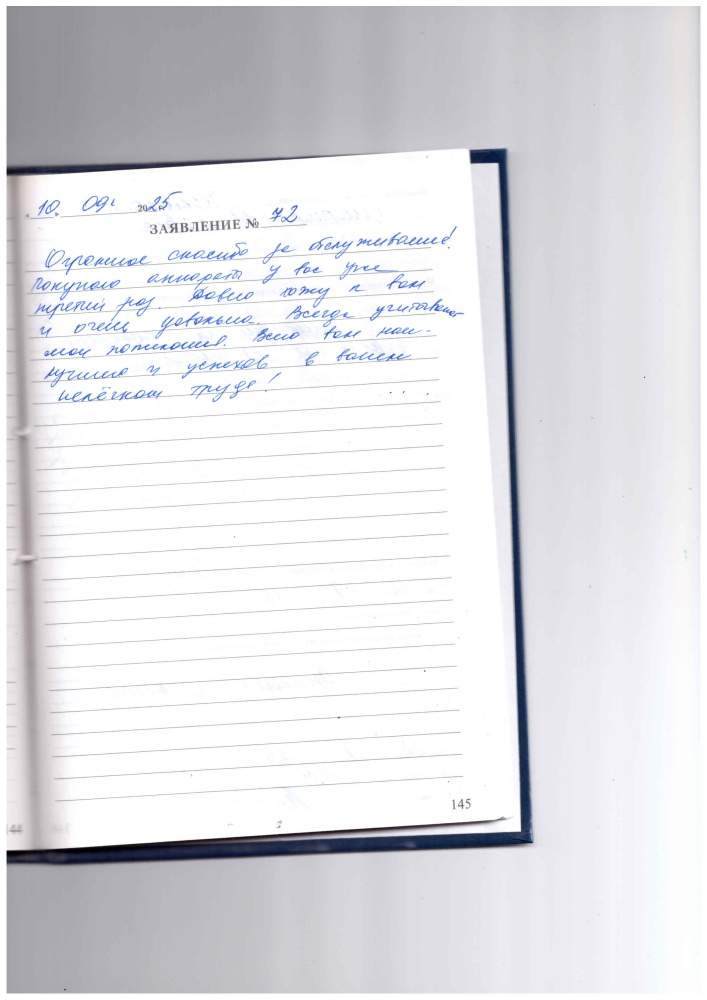 10. 09. 2025
ЗАЯВЛЕНИЕ № 72
Огромное спасибо за обслуживание!
Покупаю аппараты у вас уже
третий раз. Давно хожу к вам
и очень довольна. Всегда учитывают
мои пожелания. Всего вам наи-
лучшего и успехов в вашем
нелёгком труде!
145
144